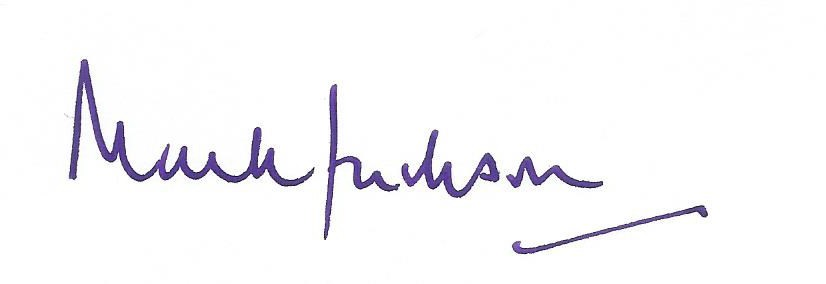 Mark Jackson